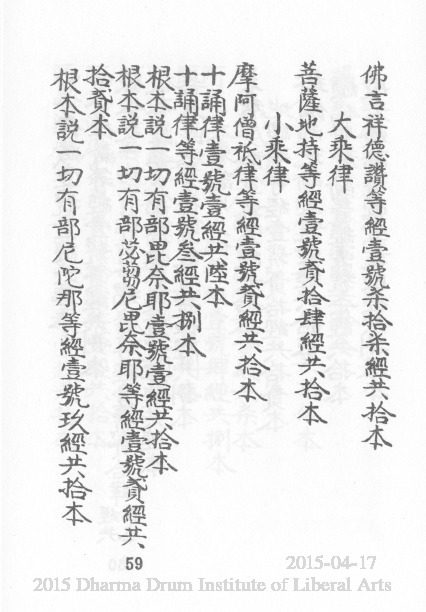 佛言祥德讚等經壹號柒拾柒經共拾本
大乘律
菩薩地持等經壹號貳拾肆經共拾本
小乘律
摩阿僧祇律等經壹號貳經共拾本
十誦律壹號壹經共陸本
十誦律等經壹號叁經共捌本
根本說一切有部毘奈耶壹號壹經共拾本
根本說一切有部苾蒭尼毘奈耶等經壹號貳經共
拾貳本
根本說一切有部尼陀那等經壹號玖經共拾本
59
2015-04-17
2015 Dharma Drum Institute of Liberal Arts